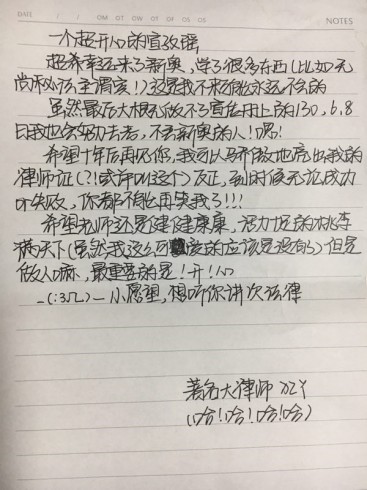 DATE
NOTES
一个超开心的宣政强
超希幸运来了新奥，学了很多东西（比如无
尚秘法：主谓宾！）这是我不来可能永远不会的
虽然最后大概元做不了宣传册上的130，6.8
日我也会努力去考，不丢新奥的人！嗯！
希望十年后再见你，我可以骄傲地亮出我的
律师证（？！或许叫这个）反正，到时候无论成功
or失败，你都不能再笑我了！！！
希望老师还是健健康康，活力地的桃李
满天下（虽然我这么可爱的应该是没有了）但是
做人嘛，最重要的是！开！心
_(:3」∠)_ 小愿望，想听你讲次法律
著名大律师
（哈！哈！哈！哈）